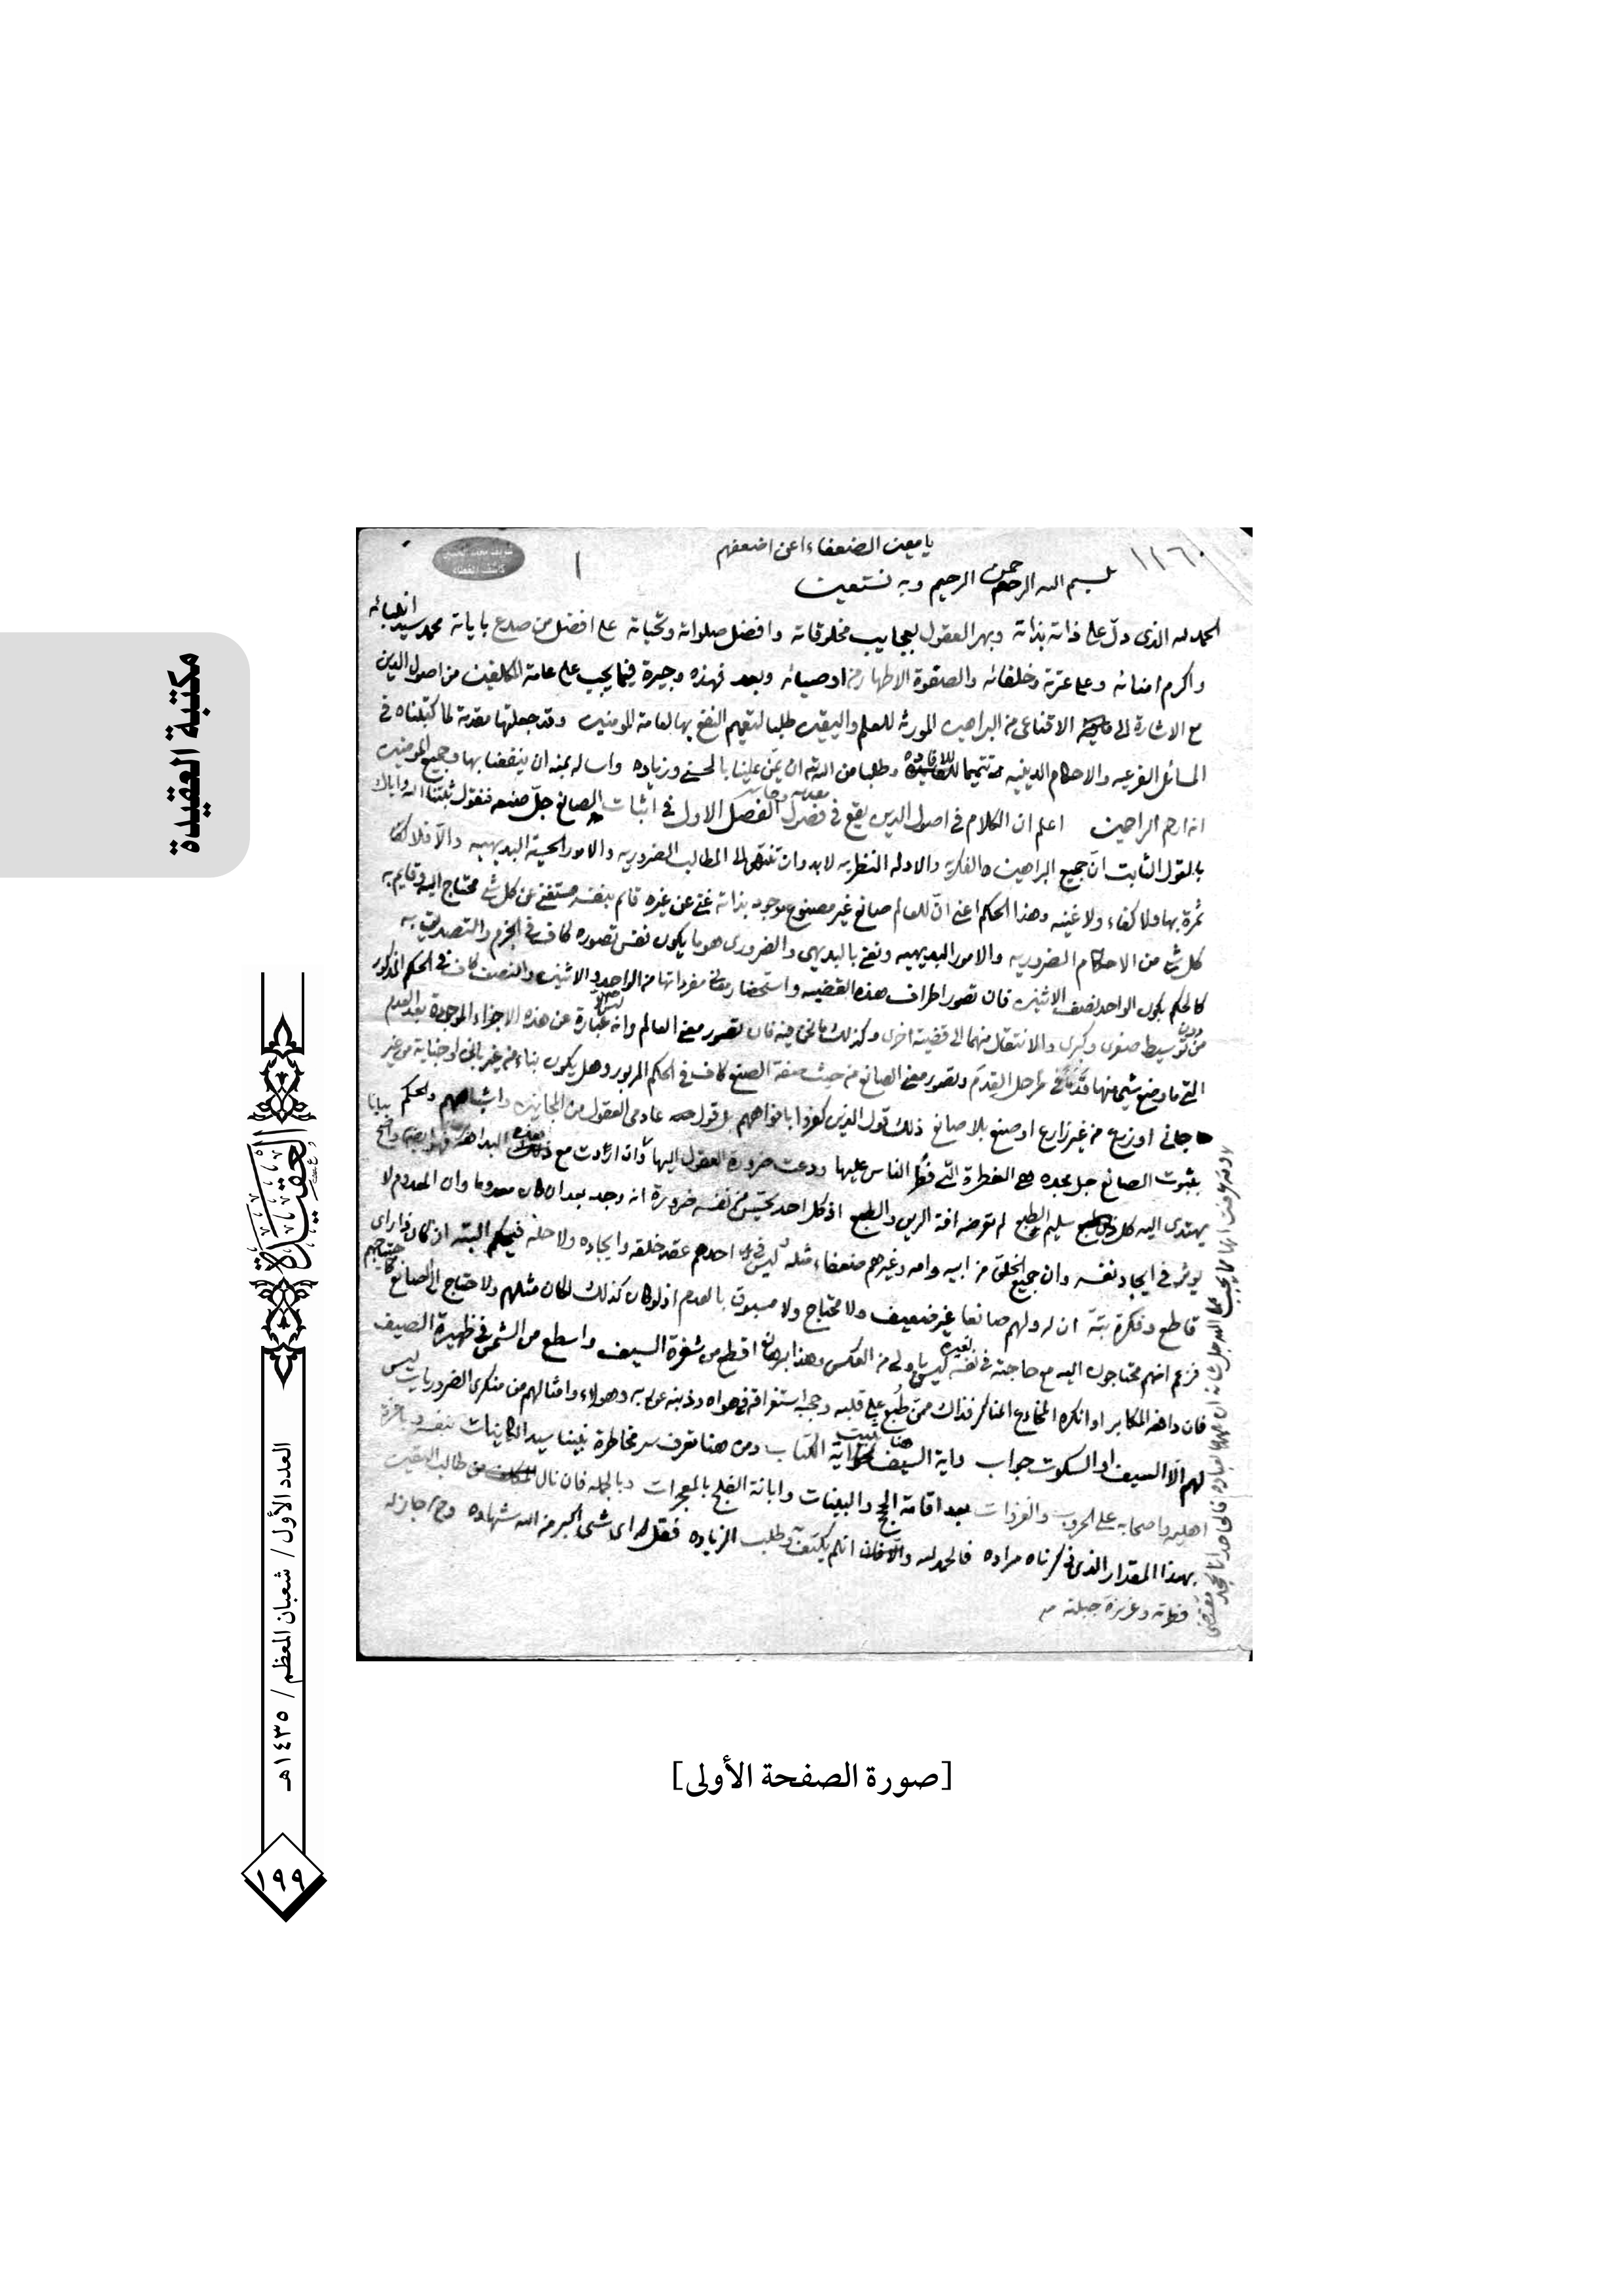 مكتبة العقيدة
يا معين الضعفاء اعن اضعفهم
١١٦٠
١
بسم الله الرحمن الرحيم وبه نستعين
الحمد لله الذى دلّ على ذاته بذاته وبهر العقول بعجايب مخلوقاته وافضل صلواته وتحياته على افضل من صدع باياته محمد سيد انبيائه
واكرم امنائه وعلى عترته وخلفائه والصفوة الاطهار من اوصيائه وبعد فهذه وجيزة فيما يجب على عامة المكلفين من اصول الدين
مع الاشارة الى الاقناعى من البراهين المورثه للعلم واليقين طلبا لتعميم النفع بها لعامة المومنين وقد جعلتها مقدمة لما كتبناه فى
المسائل الفرعيه والاحكام الدينيه تتميما للافاده وطلبا من الله ان يمنّ علينا بالحسنى وزياده واساله بمنه ان ينفعنا بها وجميع المومنين
انه ارحم الراحمين اعلم ان الكلام فى اصول الدين يقع فى فصول الفصل الاول فى اثبات الصانع جلّ صنعه فنقول ثبتنا الله واياك
بالقول الثابت انّ جميع البراهين الفكريه والادله النظريه لابد وان تنتهى الى المطالب الضروريه والامور الحسية البديهيه والّا فلا
ثمرة بها ولا كفاء ولا غنيه وهذا الحكم اعنى انّ للعالم صانع غير مصنوع موجود بذاته غنى عن غيره قائم بنفسه مستغنى عن كل شى محتاج اليه وقايم به
كل شى من الاحكام الضروريه والامور البديهيه ونعنى بالبديهى والضرورى هو ما يكون نفس تصوره كاف فى الجزم والتصديق به
كالحكم بكون الواحد نصف الاثنين فان تصور اطراف هذه القضيه واستحضار معانى مفرداتها من الواحد والاثنين والنصف كاف فى الحكم المذكور
من دون توسيط صغرى وكبرى والانتقال منهما الى قضية اخرى وكذلك ما نحن فيه فان تصور معنى العالم وانه عبارة عن هذه الاجزاء الموجودة بعد العدم
التى ما وضع شى منها قدما فى مراحل القدم وتصور معنى الصانع من حيث صفة الصنع كاف فى الحكم المزبور وهل يكون بناء من غير بانى او جناية من غير
جانى او زرع من غير زارع او صنع بلا صانع ذلك قول الذين كفروا بافواههم بل قول عادمى العقول من المجانين واشباههم والحكم
بثبوت الصانع جل مجده هى الفطرة التى فطر الناس عليها ودعت ضرورة العقول اليها وان اردت مع هذه البداهة بيانا
يهتدى اليه كل سليم الطبع لم تعرضه افة الرين والطبع اذ كل احد يحسّ من نفسه ضرورة انه وجد بعد ان كان معدوما وان المعدوم لا
يوثر فى ايجاد نفسه وان جميع الخلق من ابيه وامه وغيرهم ضعفاء مثله ليس فى يد احدهم عقد خلقه وايجاده ولا حله فيحكم البته ان كان ذا راى
قاطع وفكرة بتّة ان له ولهم صانعا غير ضعيف ولا محتاج ولا مسبوق بالعدم اذ لو كان كذلك لكان مثلهم ولاحتاج الى الصانع كاحتياجهم
فزعم انهم محتاجون اليه مع حاجته فى نفسه لغيره ليس باولى من العكس وهذا برهان اقطع من شفرة السيف واسطع من الشمس فى ظهيرة الصيف
فان دافعه المكابر او انكره المخادع المناكر فذاك ممن طبع على قلبه وحجبه استغراقه فى هواه وذنبه عن ربه وهولاء وامثالهم من منكرى الضروريات ليس
لهم الّا السيف او السكوت جواب واية السيف هنا اية الكتاب ومن هنا تعرف سر مخاطرة نبينا سيد الكاينات بنفسه
اهليه واصحابه على الحروب والغزوات بعد اقامة الحجج والبينات وابانة الفلج بالمعجزات وبالجملة فان نال من طالب اليقين
بهذا المقدار الذى ذكرناه مراده فالحمد لله والّا فان لم يكتف وطلب الزياده فقل له اى شى اكبر من الله شهاده
فطرته وغريزة جبلته
[صورة الصفحة الأولى]
العقيدة
العدد الأول / شعبان المعظم / ١٤٣٥هـ
١٩٩